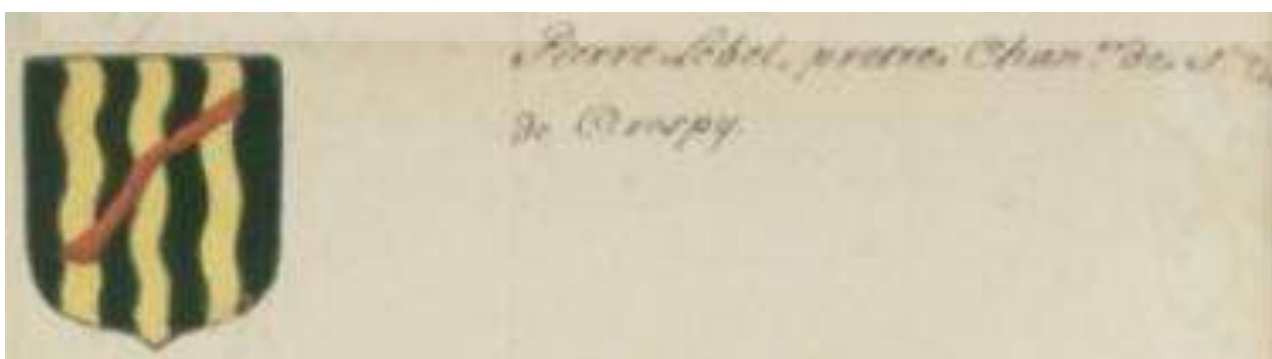 Pierre Lebel, prestre, Chan.ne de S.t
de Crespy